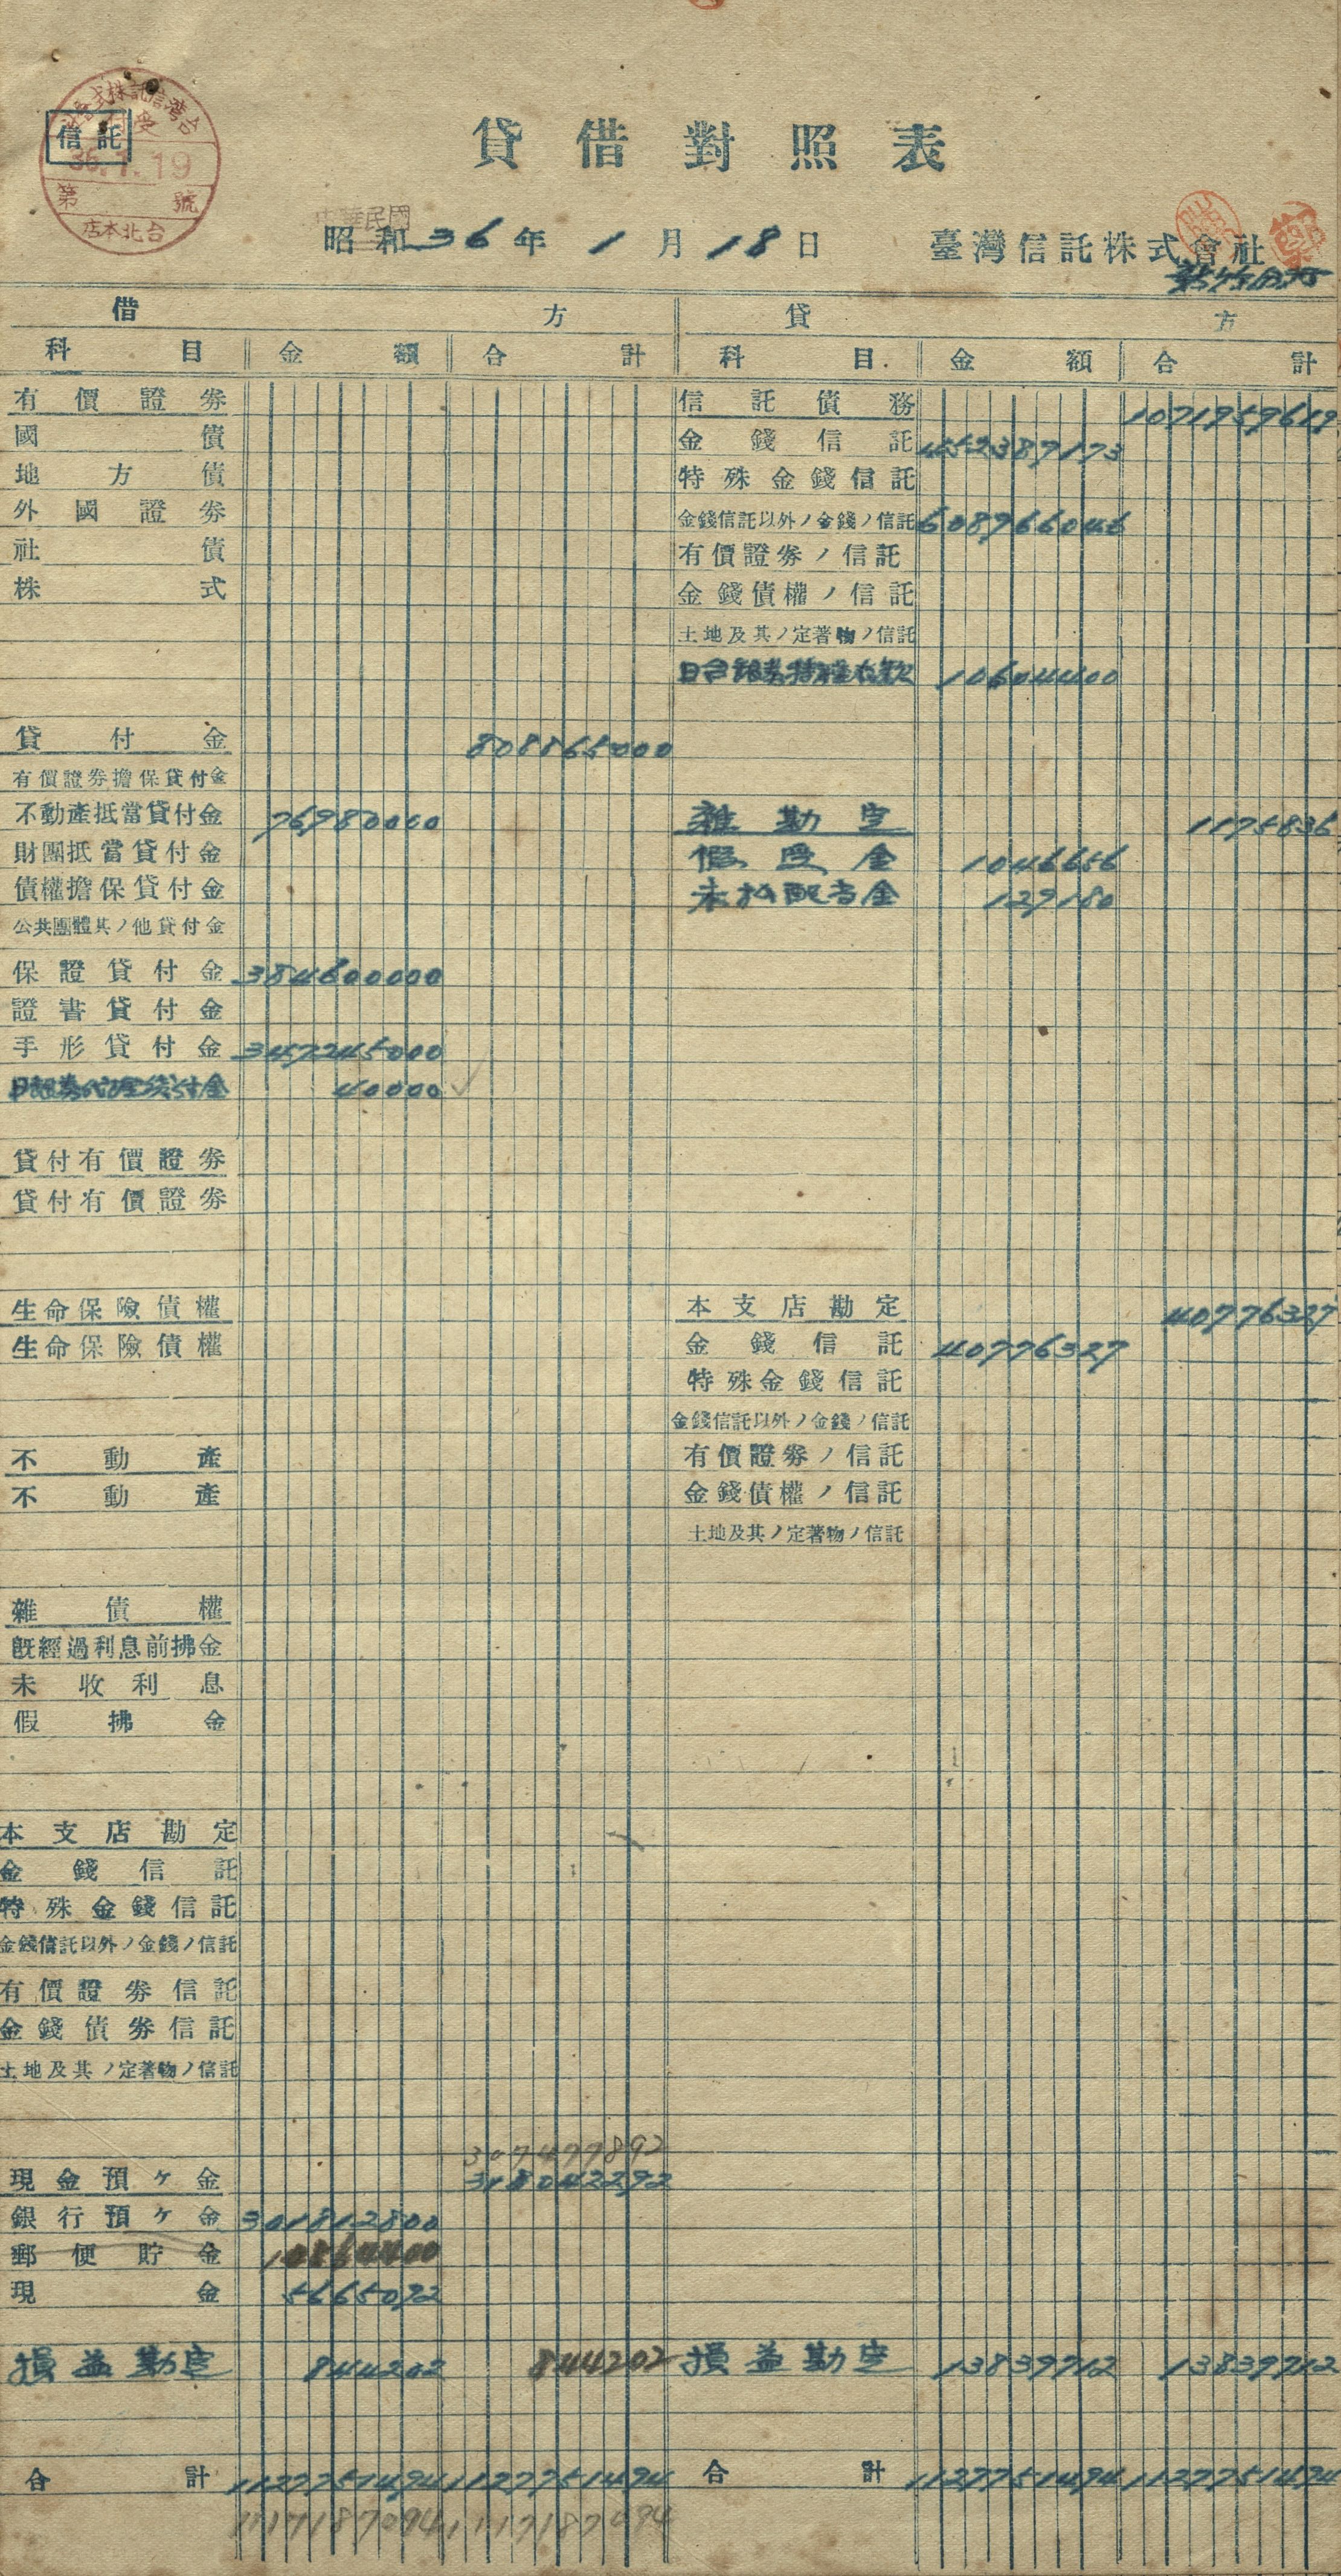 台灣信託株式會社
受付
信託
36.1.19
第 號
台北本店
貸借對照表
中華民國
昭和36年1月18日 臺灣信託株式會社
新竹分店
借 方 貸 方
科目 金額 合計 科目 金額 合計
有價證券 信託債務 1071959619
國債 金錢信託 452389173
地方債 特殊金錢信託
外國證券 金錢信託以外ノ金錢ノ信託 608966046
社債 有價證券ノ信託
株式 金錢債權ノ信託
土地及其ノ定著物ノ信託
日台銀券特種存款 10604400
貸付金 808865000
有價證券擔保貸付金
不動產抵當貸付金 76980000 雜勘定 1175836
財團抵當貸付金 假受金 1046656
債權擔保貸付金 未拂配當金 129180
公共團體其ノ他貸付金
保證貸付金 384600000
證書貸付金
手形貸付金 347245000
40000
貸付有價證券
貸付有價證券
生命保險債權 本支店勘定 40776327
生命保險債權 金錢信託 40776327
特殊金錢信託
金錢信託以外ノ金錢ノ信託
不動產 有價證券ノ信託
不動產 金錢債權ノ信託
土地及其ノ定著物ノ信託
雜債權
既經過利息前拂金
未收利息
假拂金
本支店勘定
金錢信託
特殊金錢信託
金錢信託以外ノ金錢ノ信託
有價證券信託
金錢債券信託
土地及其ノ定著物ノ信託
307477892
現金預ケ金 318042292
銀行預ケ金 301812800
郵便貯金 10564400
現金 5665092
損益勘定 844202 844202 損益勘定 13839712 13839712
合計 1127751494 1127751494 合計 1127751494 1127751494
1117187094 1117187094